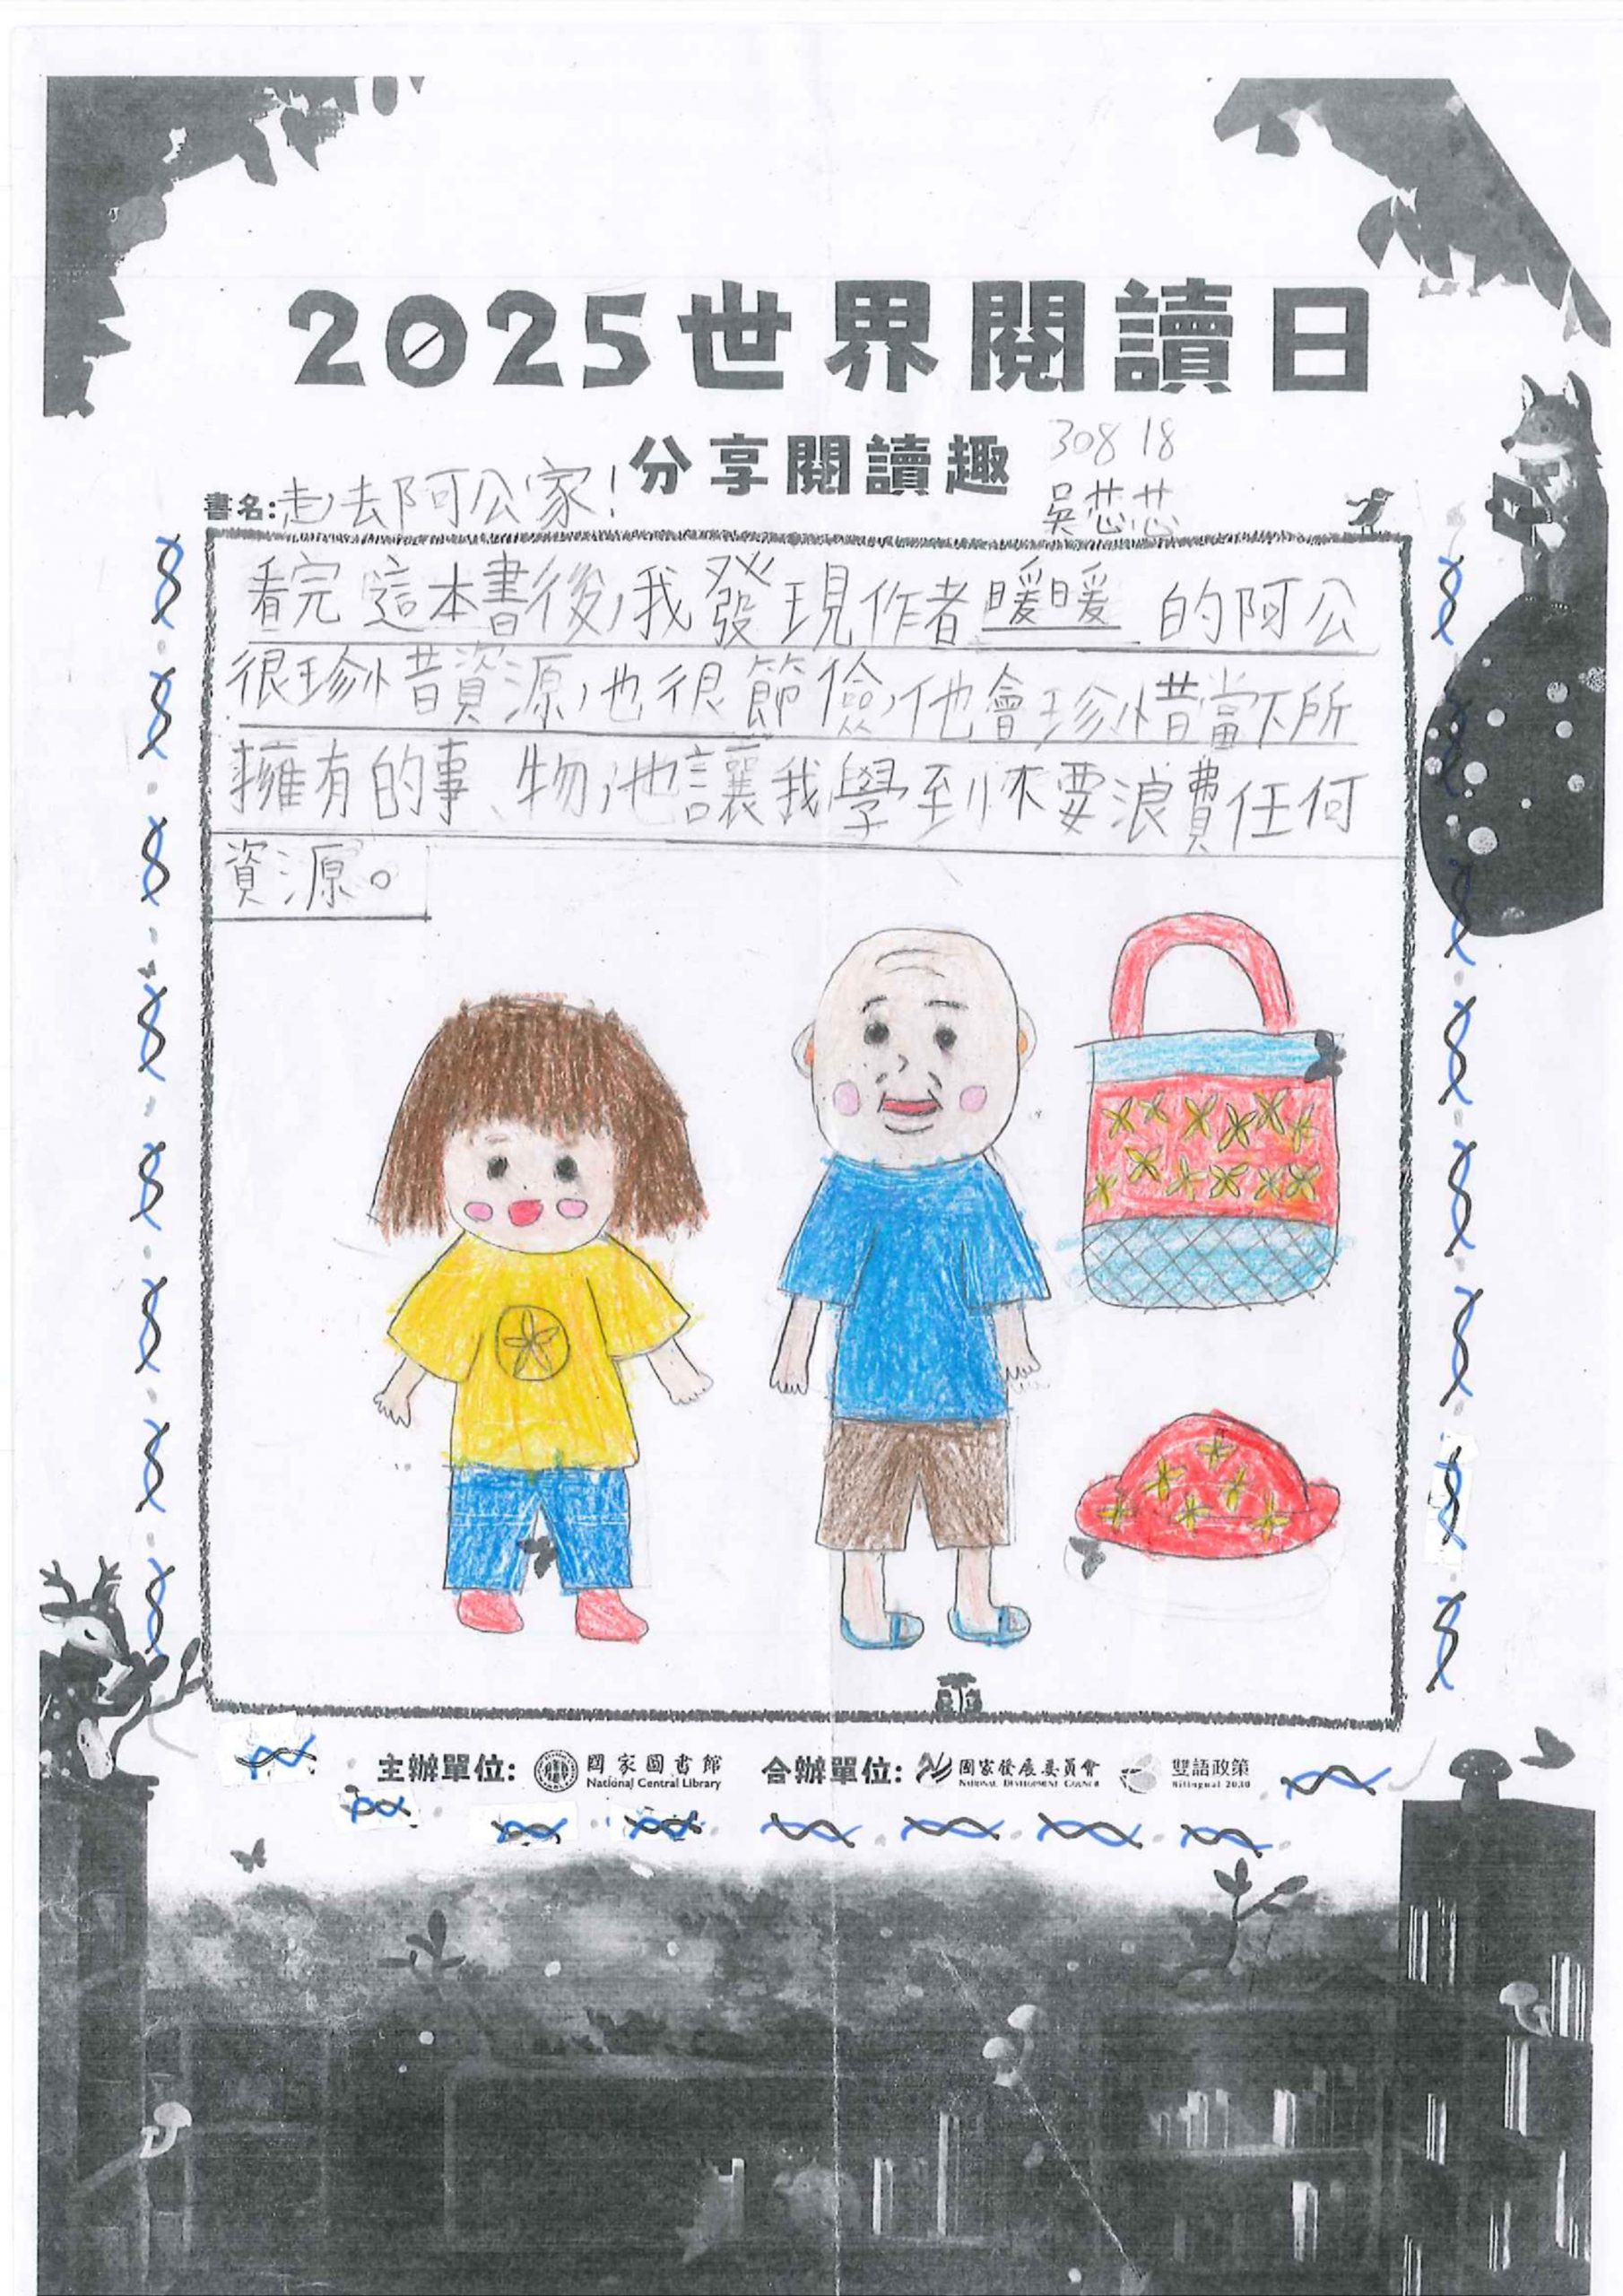 2025世界閱讀日
分享閱讀趣
308 18
書名:走去阿公家!
吳芯芯
看完這本書後,我發現作者暖暖的阿公
很珍惜資源,也很節儉,他會珍惜當下所
擁有的事、物,也讓我學到不要浪費任何
資源。
主辦單位: 國家圖書館 合辦單位: 國家發展委員會 雙語政策
National Central Library NATIONAL DEVELOPMENT COUNCIL Bilingual 2030